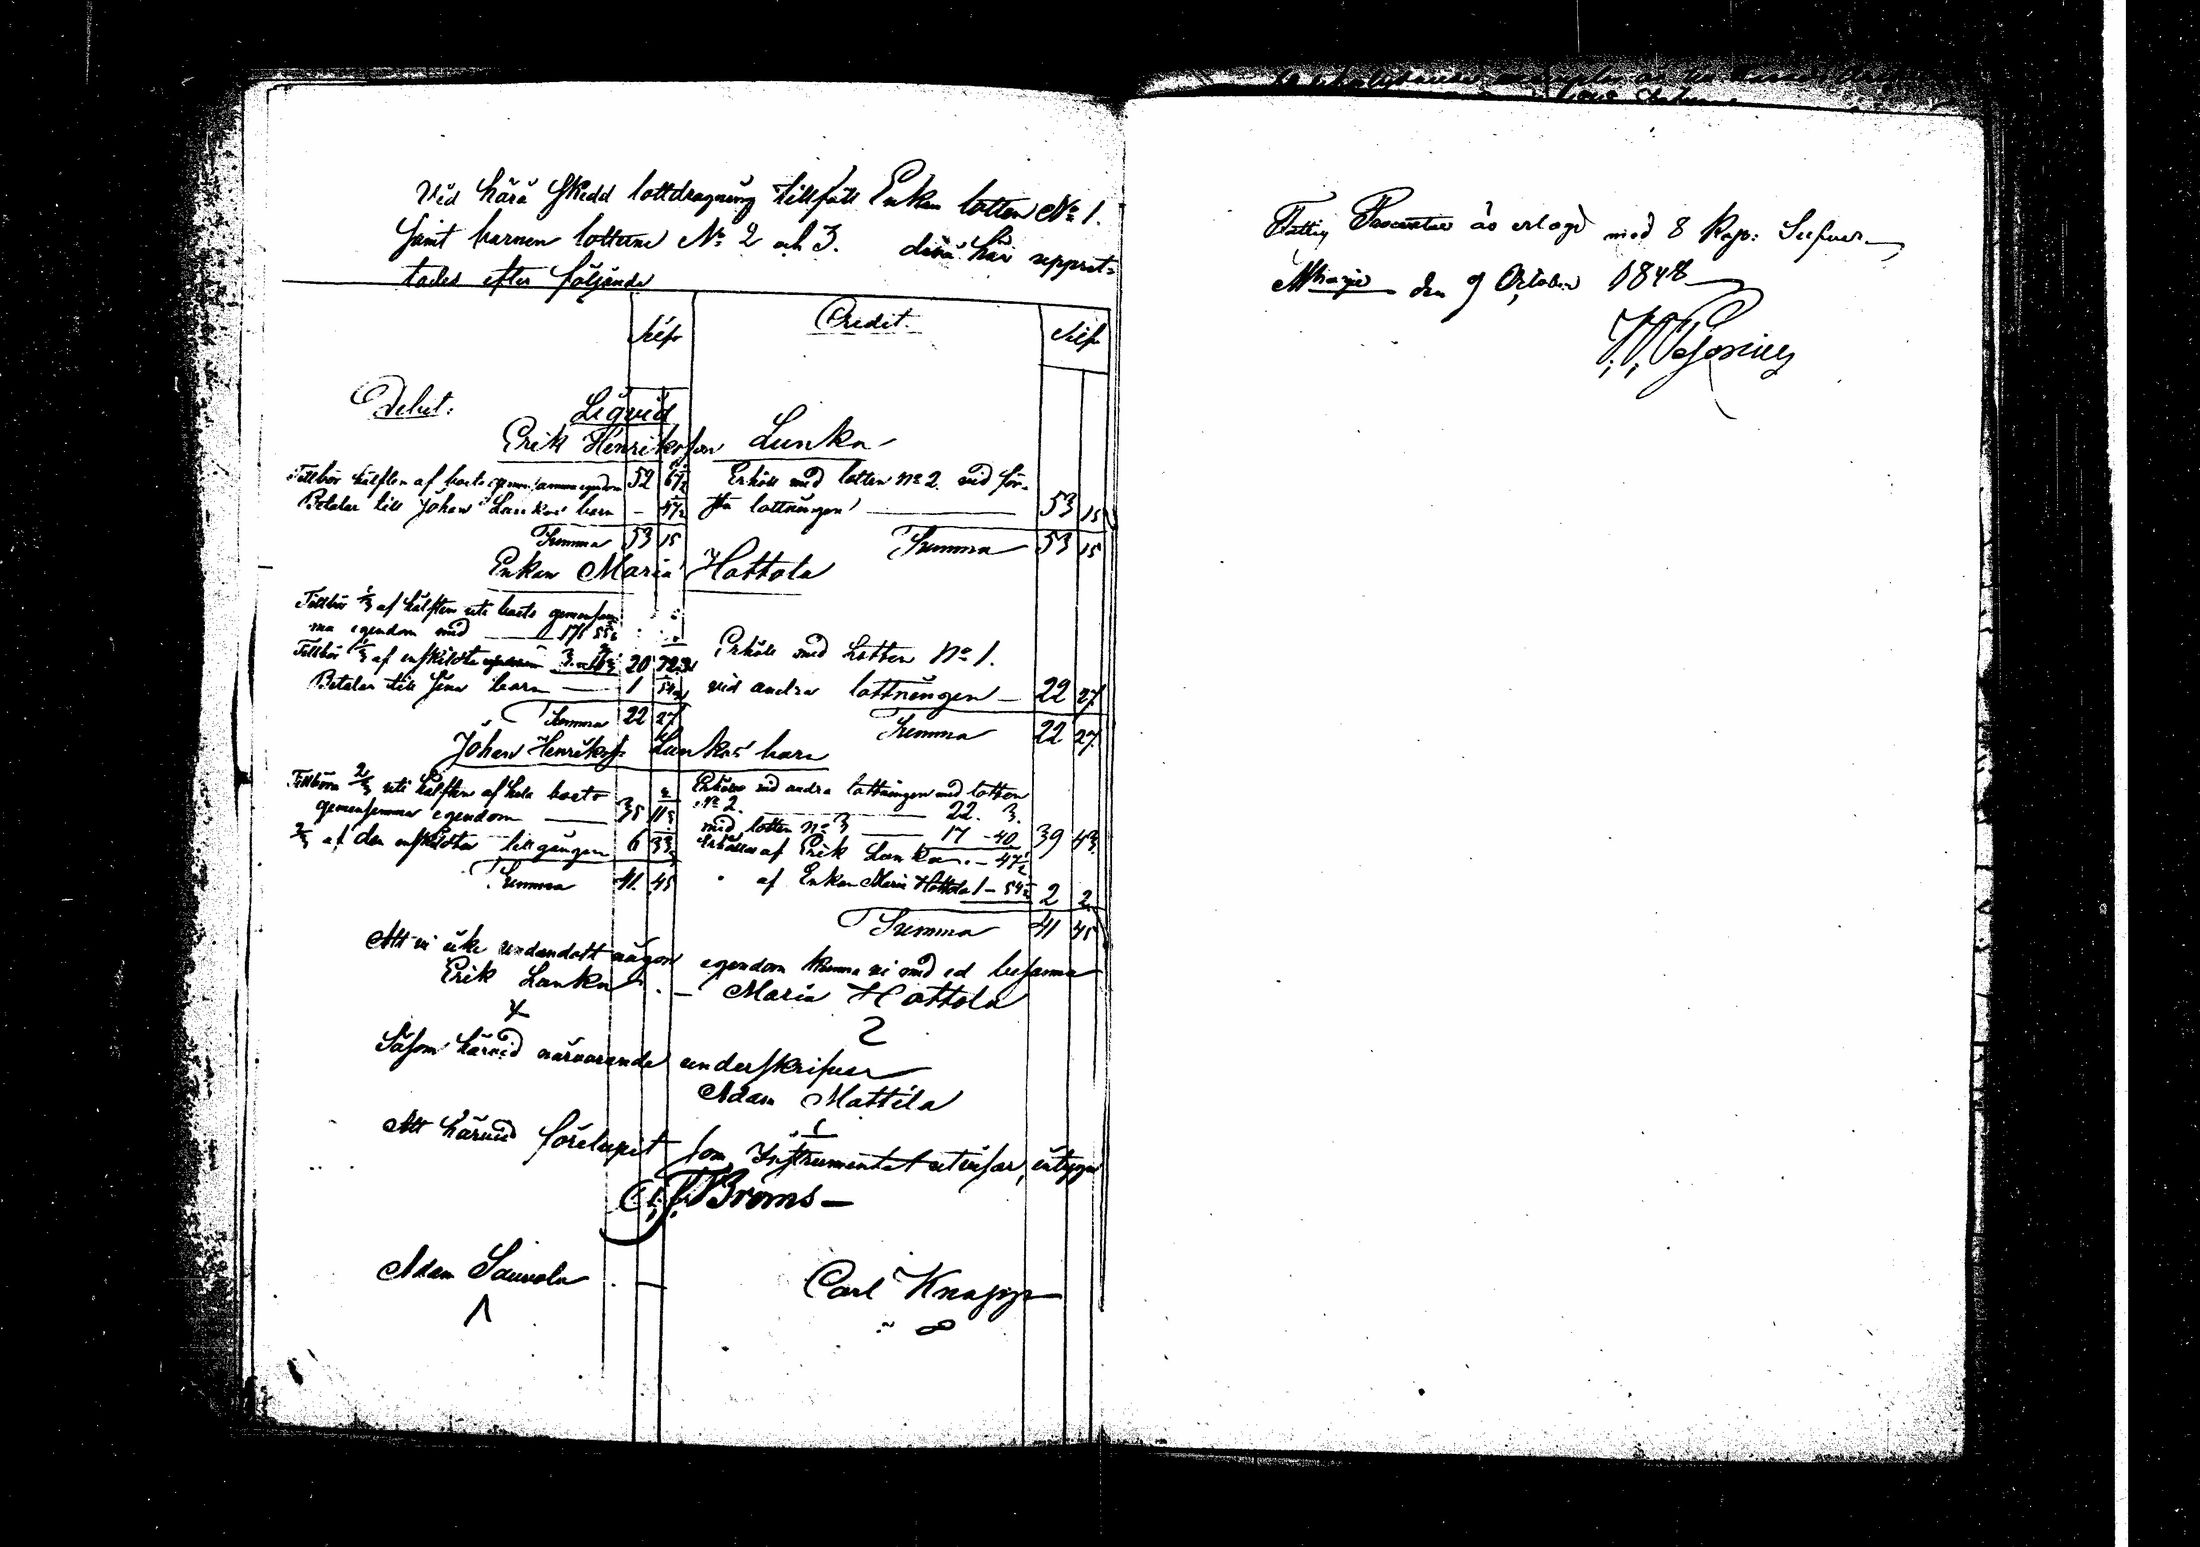 Vid härå skedd lottdragning tillföll Enkan lotten No 1.
samt barnen lotterne No 2 och 3. upprät-
tades efter följande
Silfr Credit. Silfr
Debet: Liqvid
Erik Henriksson Lunka
Tillhör hälften af boets gemensamma egendom 52 67½ Erhöll med lotten No 2 vid för-
Betalar till Johan Lunkas barn — 47½ sta lottningen 53 15
Summa 53 15 Summa 53 15
Enkan Maria Hottola
Tillhör ⅓ af hälften uti boets gemensam-
ma egendom med 17
Tillhör ⅓ af enskildta 20 72½ Erhöll med Lotten No 1.
Betalar till sina barn 1 54½ vid andra lottningen — 22 27
Summa 22 27 Summa 22 27
Johan Henrikss. Lunkas barn
Tillhöra ⅔ uti hälften af hela boets Erhöllo vid andra lottningen med lotten
gemensamma egendom 35 11 No 2. 22. 3.
⅔ af den enskildta tillgången 6 33 med lotten No 3 17 - 40 39 43
Erhålla af Erik Lunka - 47½
Summa 41 45 af Enkan Maria Hottola 1 - 54½ 2 2
Summa 41 45
Att vi icke undandolt någon egendom kunna vi med ed besanna
Erik Lunka — Maria Hottola
Såsom härvid närvarande underskrifver
Adam Mattila
Att härvid förelupit som Instrumentet utvisar, intygar
Broms —
Adam Sauvola — Carl Knapp
Fattig Procenten är erlagd med 8 Kop: Silfver
den 9 October 1848